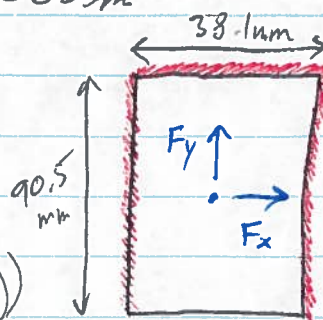 38.1mm
90.5
mm
Fy
Fx